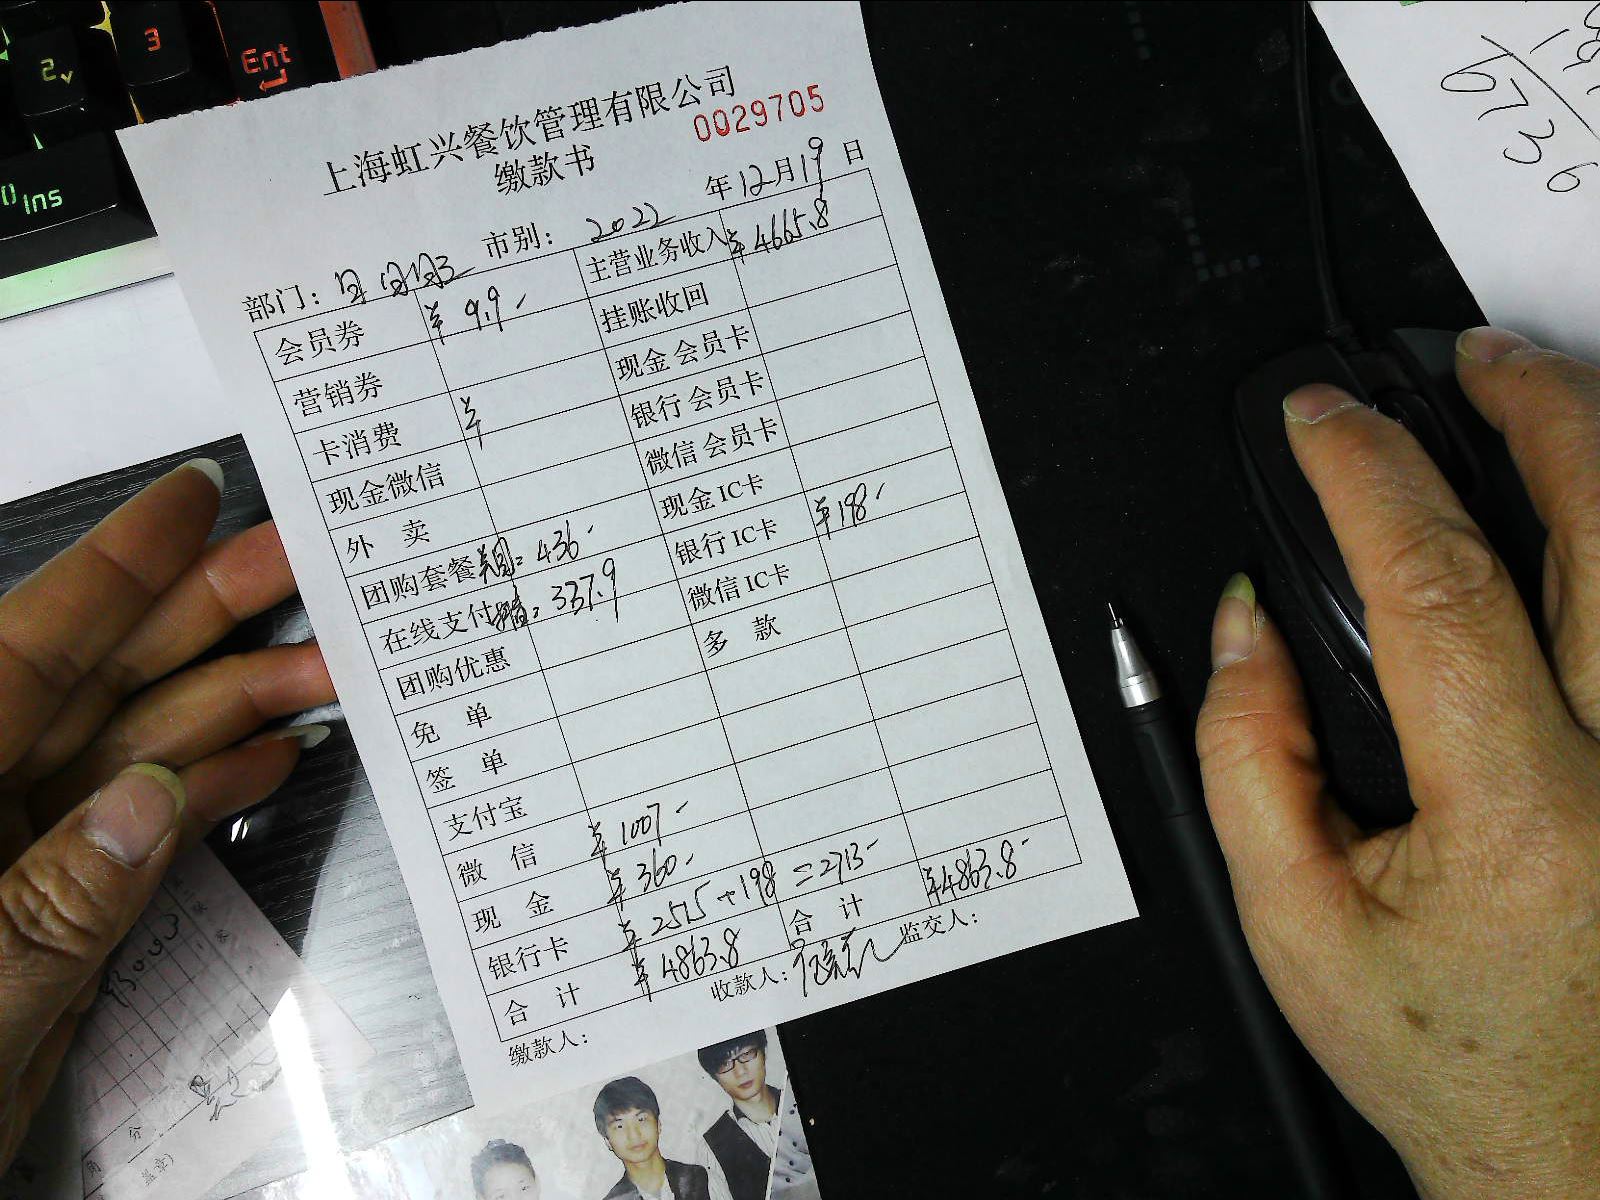 2
3
Ent
0
Ins
6736
上海虹兴餐饮管理有限公司
0029705
缴款书
部门： 市别： 2022 年12月19日
会员券 ¥9.9- 主营业务收入 ¥4665.8
营销券 挂账收回
卡消费 ¥ 现金 会员卡
现金微信 银行 会员卡
外 卖 微信 会员卡
团购套餐 美团：436- 现金 IC卡
在线支付 ：337.9 银行 IC卡 ¥198-
团购优惠 微信 IC卡
免 单 多 款
签 单
支付宝
微 信 ¥1007-
现 金 ¥360-
银行卡 ¥2515+198=2713-
合 计 ¥4863.8 合 计 ¥4863.8-
缴款人： 收款人： 监交人：
角 分
盖章)